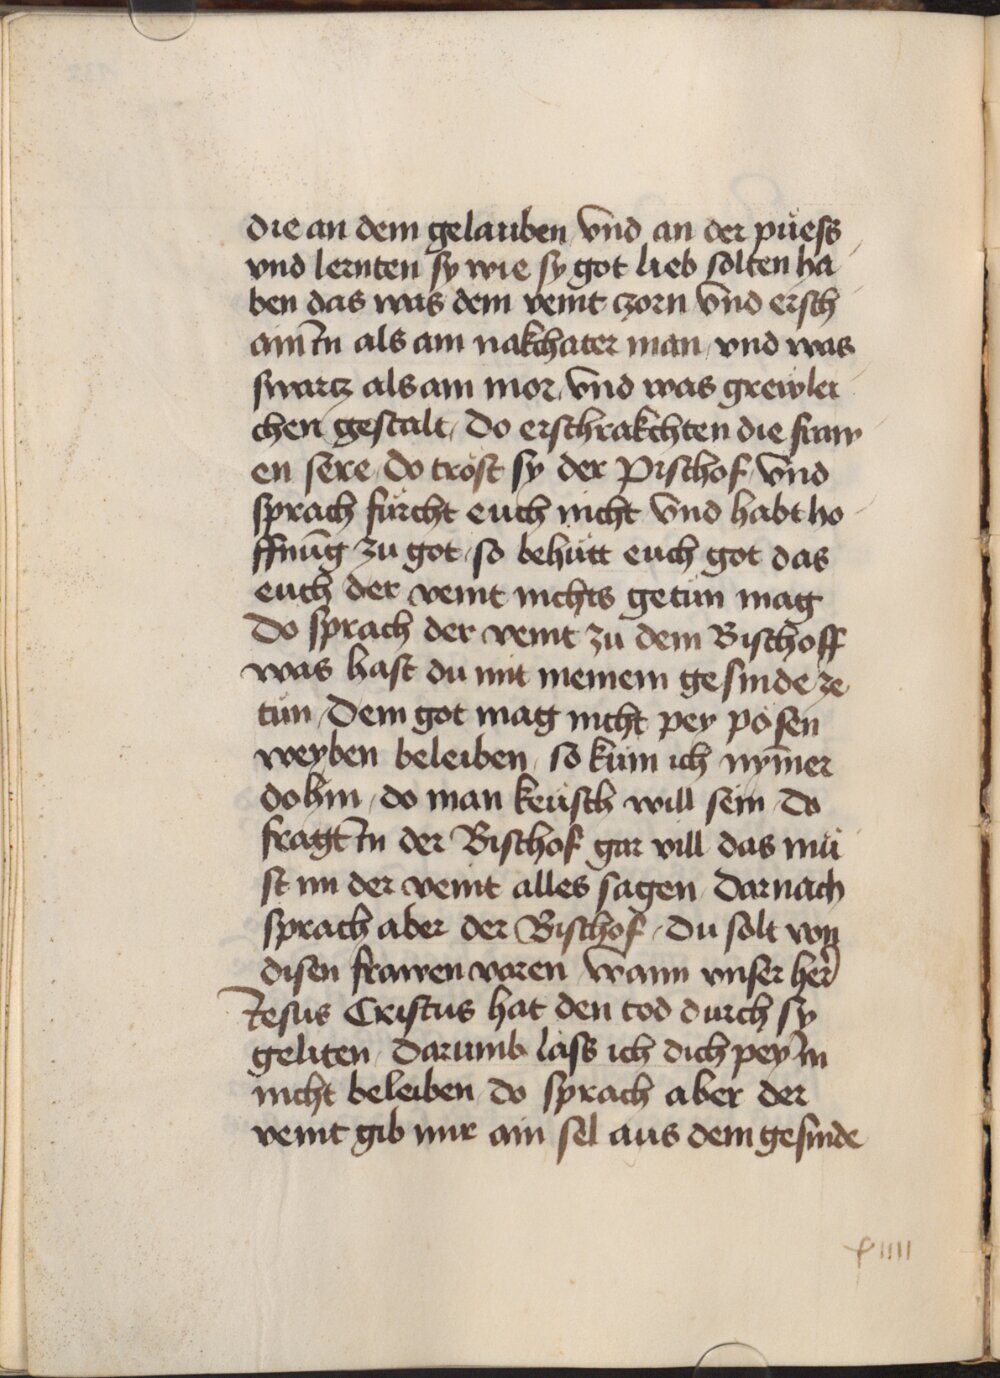 die an dem gelauben vnd an der püess
vnd lernten sy wie sy got lieb solten ha
ben das was dem veint czorn vnd ersch
ain in̄ als ain nakchater man vnd was
swartz als ain mor vnd was grewlei
chen gestalt Do erschrakchten die fraw
en sere do tröst sy der Pischof vnd
sprach fürcht euch nicht vnd habt ho
ffnūg zu got so behütt euch got das
euch der veint nichts getün mag
Do sprach der veint zu dem Bischoff
was hast du mit meinem gesinde ze
tün Dein got mag nicht pey pösen
weyben beleiben so kum ich nym̄er
dohin do man keüsch will sein Do
fragt in der Bischof gar vill das mü
st im der veint alles sagen Darnach
sprach aber der Bischof Du solt von
disen frawen varen wann vnser her
Jesus Cristus hat den tod durch sy
geliten Darumb lass ich dich pey in
nicht beleiben do sprach aber der
veint gib mir ain sel aus dem gesinde